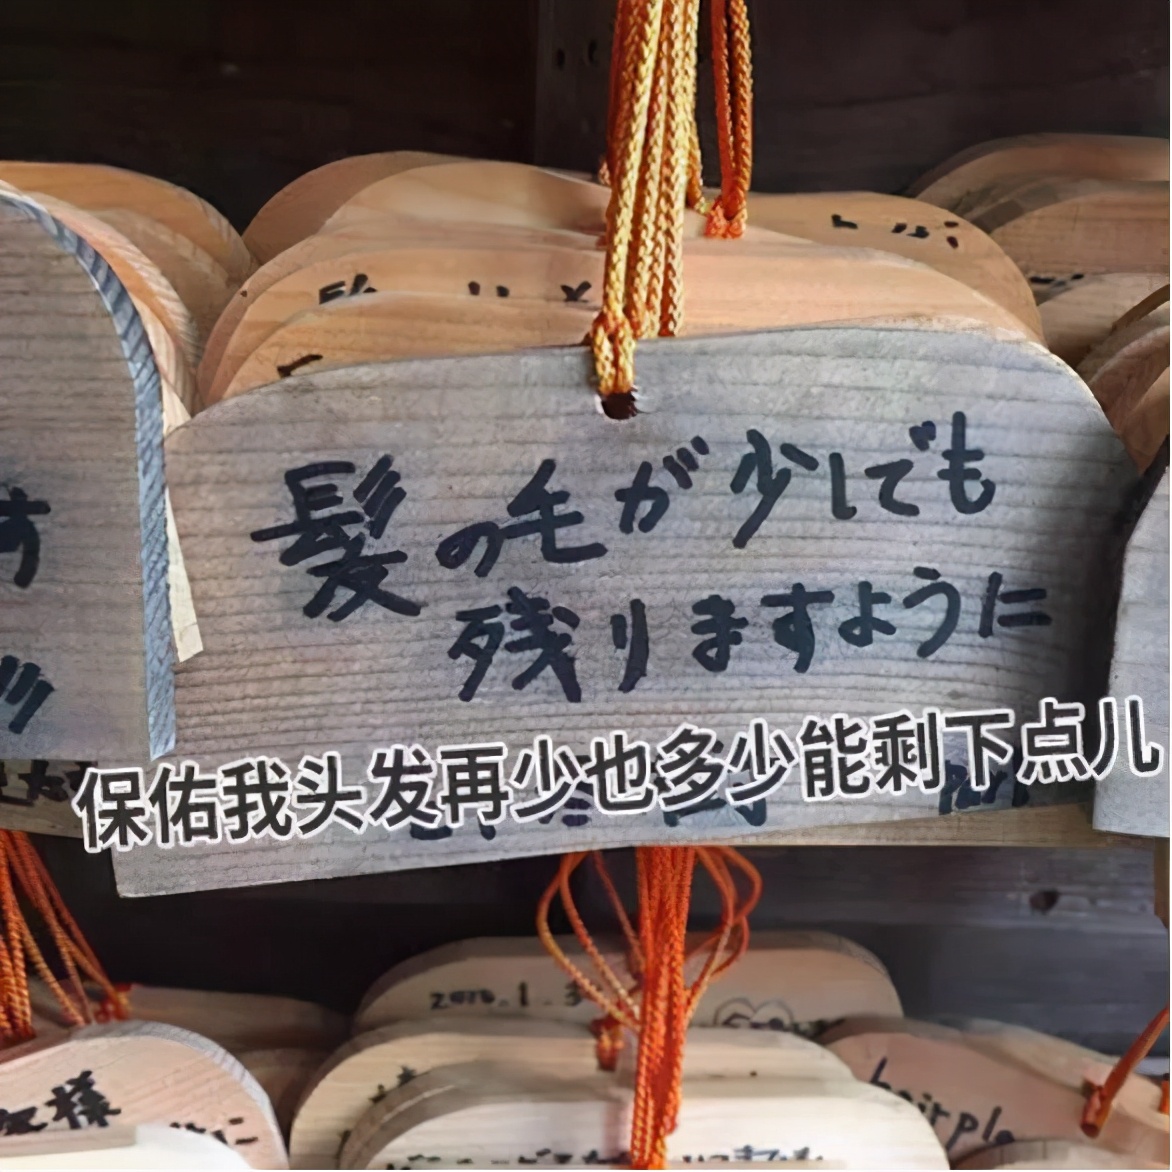 髪の毛が少しでも
残りますように
保佑我头发再少也多少能剩下点儿
hairpla